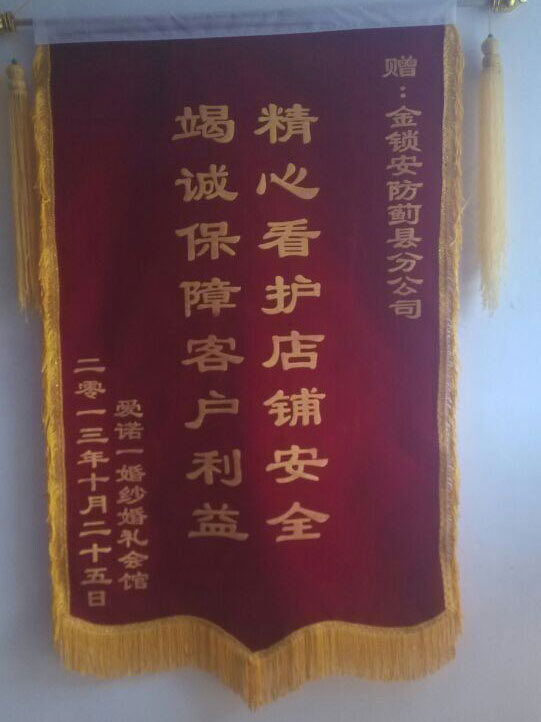 赠：金锁安防蓟县分公司
精心看护店铺安全
竭诚保障客户利益
爱诺一婚纱婚礼会馆
二零一三年十月二十五日